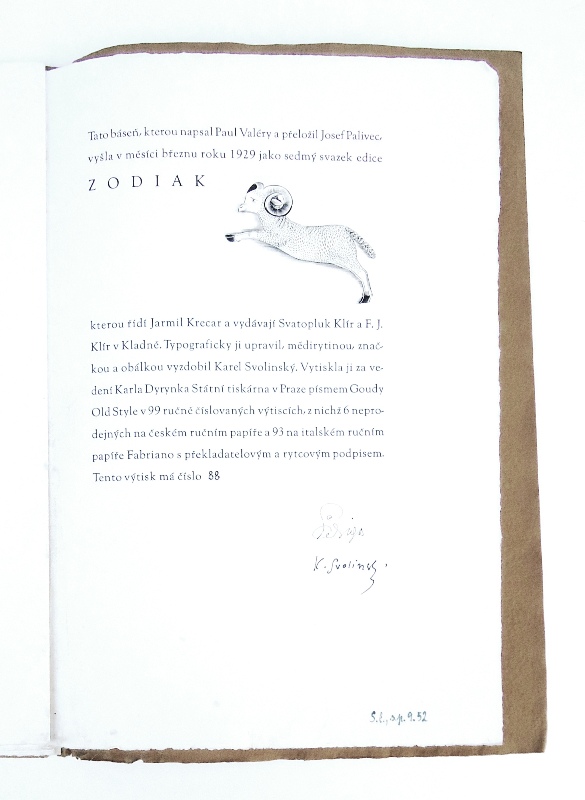 Tato báseň, kterou napsal Paul Valéry a přeložil Josef Palivec,
vyšla v měsíci březnu roku 1929 jako sedmý svazek edice
ZODIAK
kterou řídí Jarmil Krecar a vydávají Svatopluk Klír a F. J.
Klír v Kladně. Typograficky ji upravil, mědirytinou, znač-
kou a obálkou vyzdobil Karel Svolinský. Vytiskla ji za ve-
dení Karla Dyrynka Státní tiskárna v Praze písmem Goudy
Old Style v 99 ručně číslovaných výtiscích, z nichž 6 nepro-
dejných na českém ručním papíře a 93 na italském ručním
papíře Fabriano s překladatelovým a rytcovým podpisem.
Tento výtisk má číslo 88
K. Svolinský.
9.52